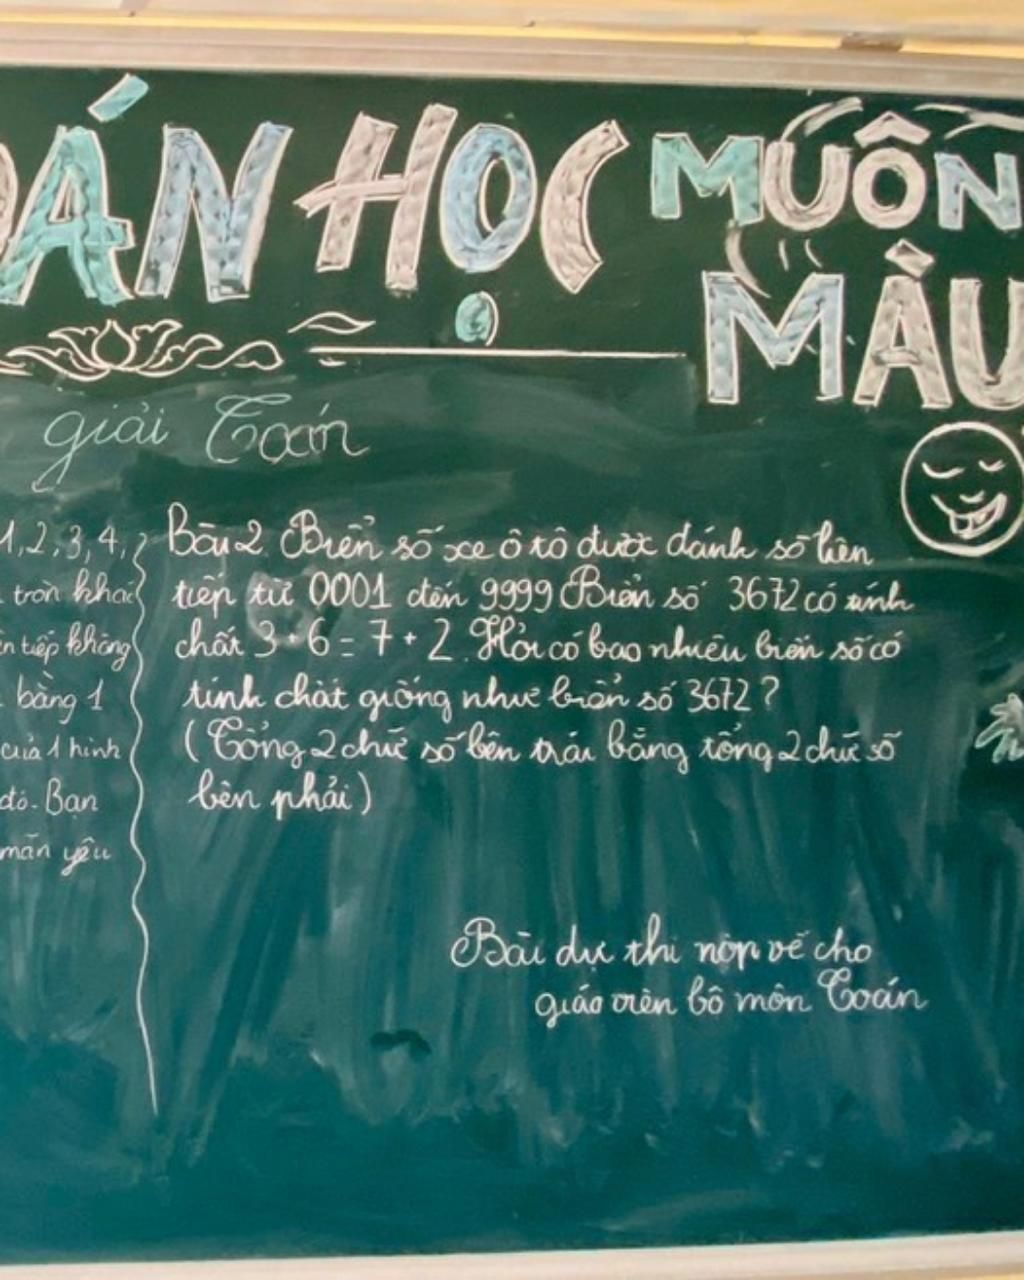 OÁN HỌC MUÔN
MÀU
giải Toán
1, 2, 3, 4,
tròn khai
n tiếp không
bằng 1
của 1 hình
đó. Bạn
mãn yêu
Bài 2. Biển số xe ô tô được đánh số liên
tiếp từ 0001 đến 9999 Biển số 3672 có tính
chất 3 + 6 = 7 + 2. Hỏi có bao nhiêu biển số có
tính chất giống như biển số 3672?
(Tổng 2 chữ số bên trái bằng tổng 2 chữ số
bên phải)
Bài dự thi nộp về cho
giáo viên bộ môn Toán